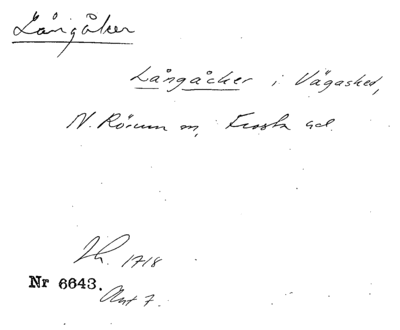 Långåker
Långåcker i Vågasked,
N. Rörum sn, Frosta hd.
Jb. 1718
Nr 6643.
Ant 7.